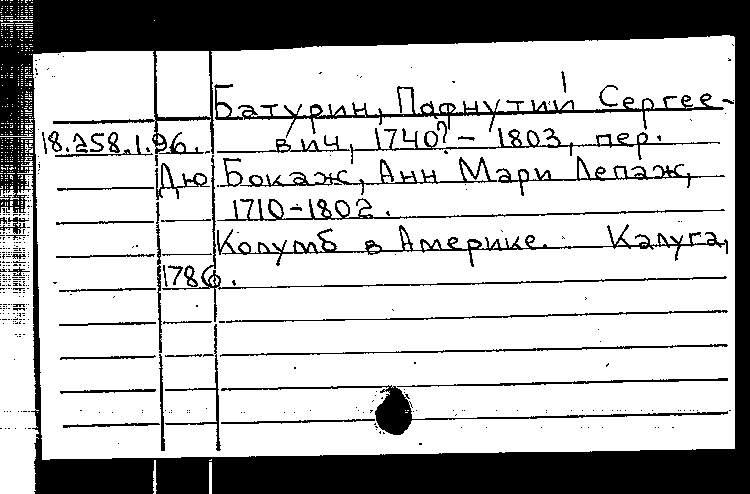 Батурин, Пафнутий Сергее-
18.258.1.96. вич, 1740?- 1803, пер.
Дю Бокаж, Анн Мари Лепаж,
1710-1802.
Колумб в Америке. Калуга,
1786.